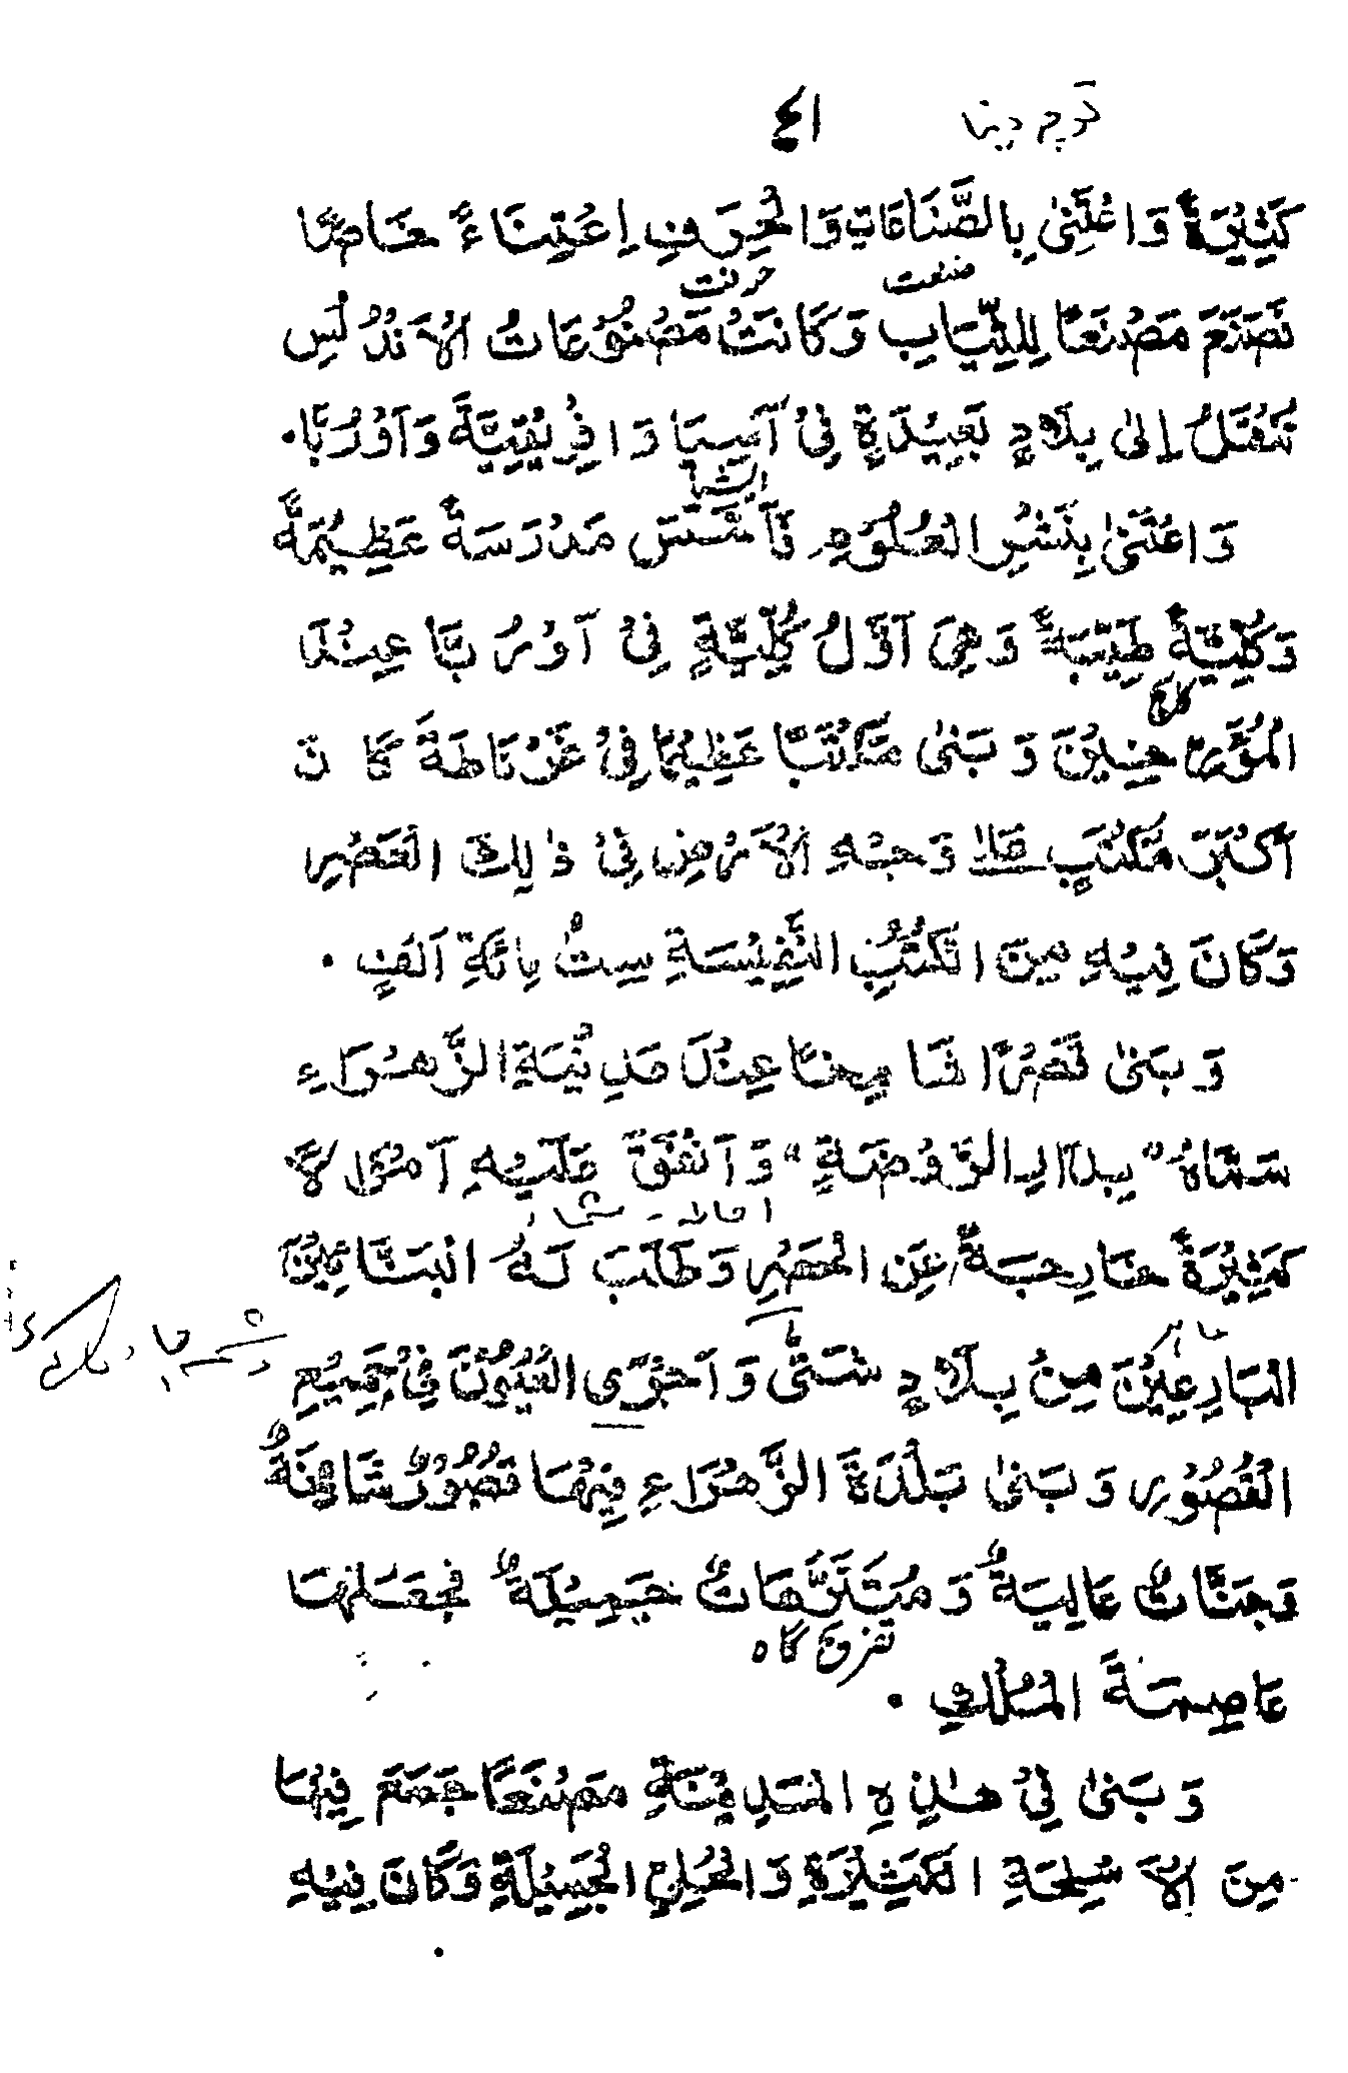 توجہ دینا
٤١
كَثِيْرَةً وَاعْتَنٰى بِالصَّنَاعَاتِ وَالْحِرَفِ اِعْتِنَاءً خَاصًّا
صنعت حرفت
فَصَنَعَ مَصْنَعًا لِلثِّيَابِ وَكَانَتْ مَصْنُوْعَاتُ الْاَنْدُلُسِ
تُنْقَلُ إِلىٰ بِلَادٍ بَعِيْدَةٍ فِيْ آسِيَا وَافْرِيْقِيَّةَ وَاَوْرُبَّا.
ایشیا
وَاعْتَنٰى بِنَشْرِ الْعُلُوْمِ فَاَسَّسَ مَدْرَسَةً عَظِيْمَةً
وَكُلِّيَّةً طِبِّيَّةً وَهِيَ اَوَّلُ كُلِّيَّةٍ فِيْ اَوْرُبَّا عِنْدَ
كالج
الْمُؤَرِّخِيْنَ وَبَنٰى مَكْتَبًا عَظِيْمًا فِيْ غَرْنَاطَةَ كَانَ
اَكْبَرَ مَكْتَبٍ عَلىٰ وَجْهِ الْاَرْضِ فِيْ ذٰلِكَ الْعَصْرِ
وَكَانَ فِيْهِ مِنَ الْكُتُبِ النَّفِيْسَةِ سِتُّ مِائَةِ اَلْفٍ .
وَبَنٰى قَصْرًا شَامِخًا عِنْدَ مَدِيْنَةِ الزَّهْرَاءِ
سَمَّاهُ "بِدَارِ الرَّوْضَةِ" وَاَنْفَقَ عَلَيْهِ اَمْوَالًا
احاطہ - شمار
كَثِيْرَةً خَارِجَةً عَنِ الْحَصْرِ وَطَلَبَ لَهُ الْبَنَّائِيْنَ
ماہر
الْبَارِعِيْنَ مِنْ بِلَادٍ شَتّٰى وَاَجْرَى الْعُيُوْنَ فِيْ جَمِيْعِ
چشمہ جاری کیا
الْقُصُوْرِ وَبَنٰى بَلْدَةَ الزَّهْرَاءِ فِيْهَا قُصُوْرٌ شَاهِقَةٌ
وَجَنَّاتٌ عَالِيَةٌ وَمُتَنَزَّهَاتٌ جَمِيْلَةٌ فَجَعَلَهَا
تفریح گاہ
عَاصِمَةَ الْمُلْكِ .
وَبَنٰى فِيْ هٰذِهِ الْمَدِيْنَةِ مَصْنَعًا جَمَعَ فِيْهَا
مِنَ الْاَسْلِحَةِ الْكَثِيْرَةِ وَالْحُلِيِّ الْجَمِيْلَةِ وَكَانَ فِيْهِ